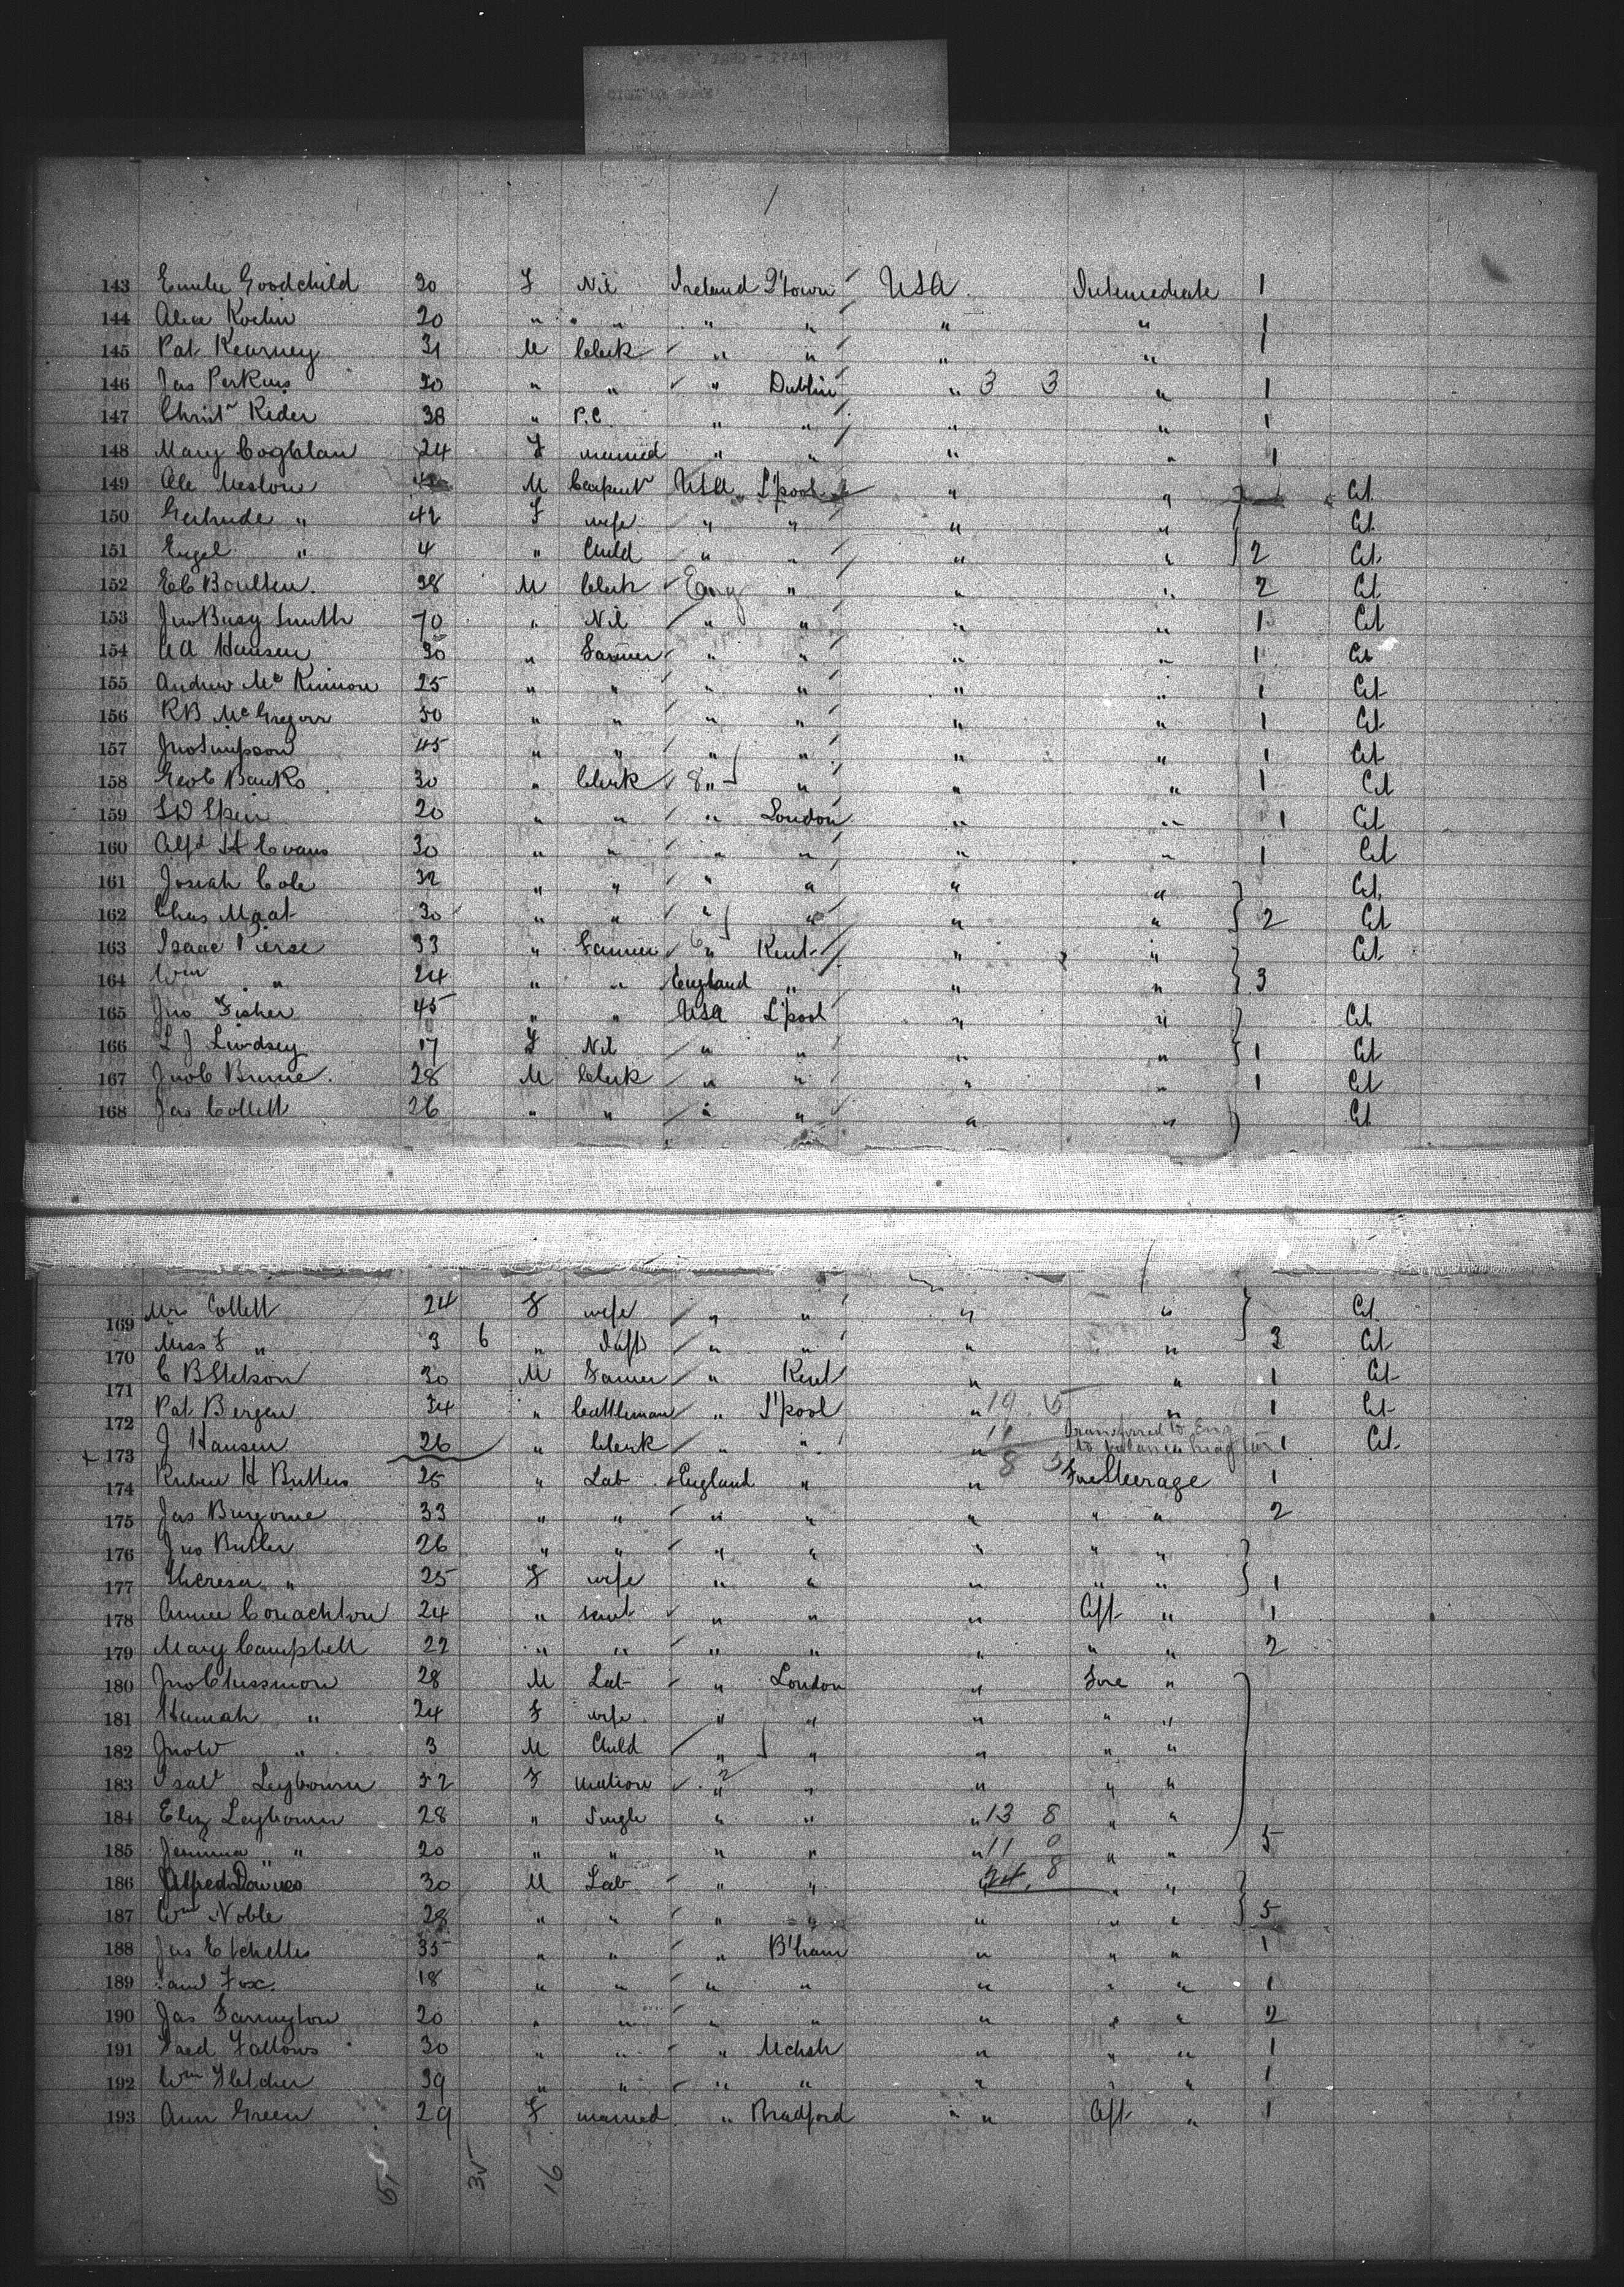 143 Emilie Goodchild 30 F Nil Ireland Q'town USA Intermediate 1
144 Alice 20 " " " " " " 1
145 Pat Kearney 31 M Clerk " " " " 1
146 Jas Perkins 20 " " " Dublin " 3 3 " 1
147 Christr Reder 38 " P.C. " " " " 1
148 Mary Coghlan 24 F married " " " " 1
149 M Carpentr USA L'pool " " Cit
150 Gertrude " 42 F wife " " " " Cit
151 " 4 " Child " " " " 2 Cit
152 38 M Clerk Eng " " " 2 Cit
153 Jno Smith 70 " Nil " " " " 1 Cit
154 Hansen 30 " Farmer " " " " 1 Cit
155 Andrew Mc Kinnon 25 " " " " " " 1 Cit
156 RB McGregor 50 " " " " " " 1 Cit
157 Jno Simpson 45 " " " " " " 1 Cit
158 Geo C Banks 30 " Clerk 8 " " " " 1 Cit
159 20 " " " London " " 1 Cit
160 Alfd H Evans 30 " " " " " " 1 Cit
161 Josiah Cole 32 " " " " " " Cit
162 Chas Maat 30 " " " " " " 2 Cit
163 Isaac Pierse 33 " Farmer " Kent " " Cit
164 Wm " 24 " " England " " " 3
165 Jno Fisher 45 " " USA L'pool " " Cit
166 L J Lindsey 17 F Nil " " " " 1 Cit
167 Jno C 28 M Clerk " " " " 1 Cit
168 Jas Collett 26 " " " " " " Cit
169 Mrs Collett 24 F wife " " " " Cit
170 Miss F " 3 6 " " " " " 3 Cit
171 C B Stetson 30 M Farmer " Kent " " 1 Cit
172 Pat Bergen 34 " Cattleman " L'pool " 19 5 " 1 Cit
+ 173 J Hansen 26 " Clerk " " " 11 Transferred to Eng 1 Cit
8 5
174 Ruben H Butters 25 " Lab England " " Fore Steerage 1
175 Jas Burgoine 33 " " " " " " " 2
176 Jno Butler 26 " " " " " " "
177 Theresa " 25 F wife " " " " " 1
178 Annie Conachton 24 " servt " " " Aft " 1
179 Mary Campbell 22 " " " " " " " 2
180 Jno 28 M Lab " London " Fore "
181 Hannah " 24 F wife " " " " "
182 Jno W " 3 M Child " " " " "
183 Isab Leybourn 52 F matron 2 " " " " "
184 Eliz Leybourn 28 " Single " " " 13 8 " "
185 Jemima " " 20 " " " " " 11 0 " " 5
186 Alfred Downes 30 M Lab " " 24 8 " "
187 Wm Noble 28 " " " " " " " 5
188 Jas Etchells 35 " " " B'ham " " " 1
189 Saml Fox 18 " " " " " " " 1
190 Jas Farrington 20 " " " " " " " 2
191 Fred Fallows 30 " " " Mchstr " " " 1
192 Wm Fletcher 39 " " " " " " " 1
193 Ann Green 29 F married " Bradford " " Aft " 1
65 35 16